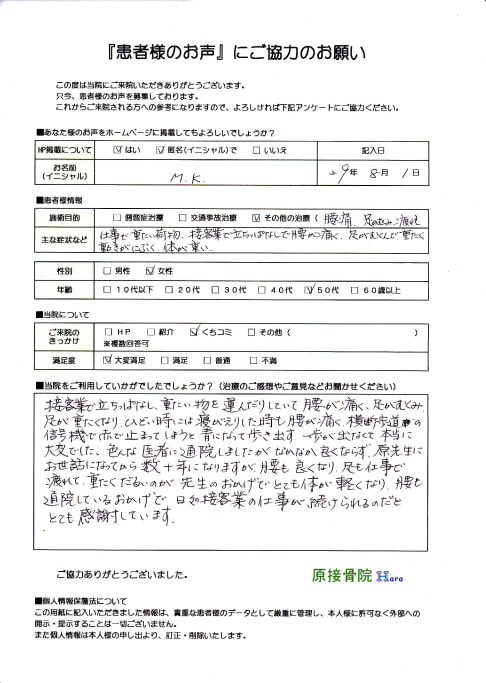 『患者様のお声』にご協力のお願い
この度は当院にご来院いただきありがとうございます。
只今、患者様のお声を募集しております。
これからご来院される方への参考になりますので、よろしければ下記アンケートにご協力ください。
■あなた様のお声をホームページに掲載してもよろしいでしょうか？
HP掲載について ☑ はい ☑ 匿名(イニシャル)で □ いいえ 記入日
お名前
(イニシャル) M.K. 29年 8月 1日
■患者様情報
施術目的 □ 側弯症治療 □ 交通事故治療 ☑ その他の治療( 腰痛、足のむくみ、疲れ
主な症状など 仕事で重たい荷物、接客業で立ちっぱなしで腰が痛く、足がむくんで重たく
動きがにぶく、体が重い。
性別 □ 男性 ☑ 女性
年齢 □ 10代以下 □ 20代 □ 30代 □ 40代 ☑ 50代 □ 60歳以上
■当院について
ご来院の
きっかけ □ HP □ 紹介 ☑ くちコミ □ その他( )
※複数回答可
満足度 ☑ 大変満足 □ 満足 □ 普通 □ 不満
■当院をご利用していかがでしたでしょうか？(治療のご感想やご意見などお聞かせください)
接客業で立ちっぱなし、重たい物を運んだりしていて腰が痛く、足がむくみ、
足が重たくなり、ひどい時には寝がえりした時も腰が痛く、横断歩道の
信号機で赤で止まってしまうと青になって歩き出す一歩が出なくて本当に
大変でした、色んな医者に通院しましたがなかなか良くならず、原先生に
お世話になってから数十年になりますが、腰も良くなり、足も仕事で
疲れて、重たくだるいのが先生のおかげでとても体が軽くなり、腰も
通院しているおかげで日々接客業の仕事が続けられるのだと
とても感謝しています。
ご協力ありがとうございました。
原接骨院 Hara
■個人情報保護法について
この用紙に記入いただきました情報は、貴重な患者様のデータとして厳重に管理し、本人様に許可なく外部への
開示・提示することは一切ございません。
また個人情報は本人様の申し出より、訂正・削除いたします。